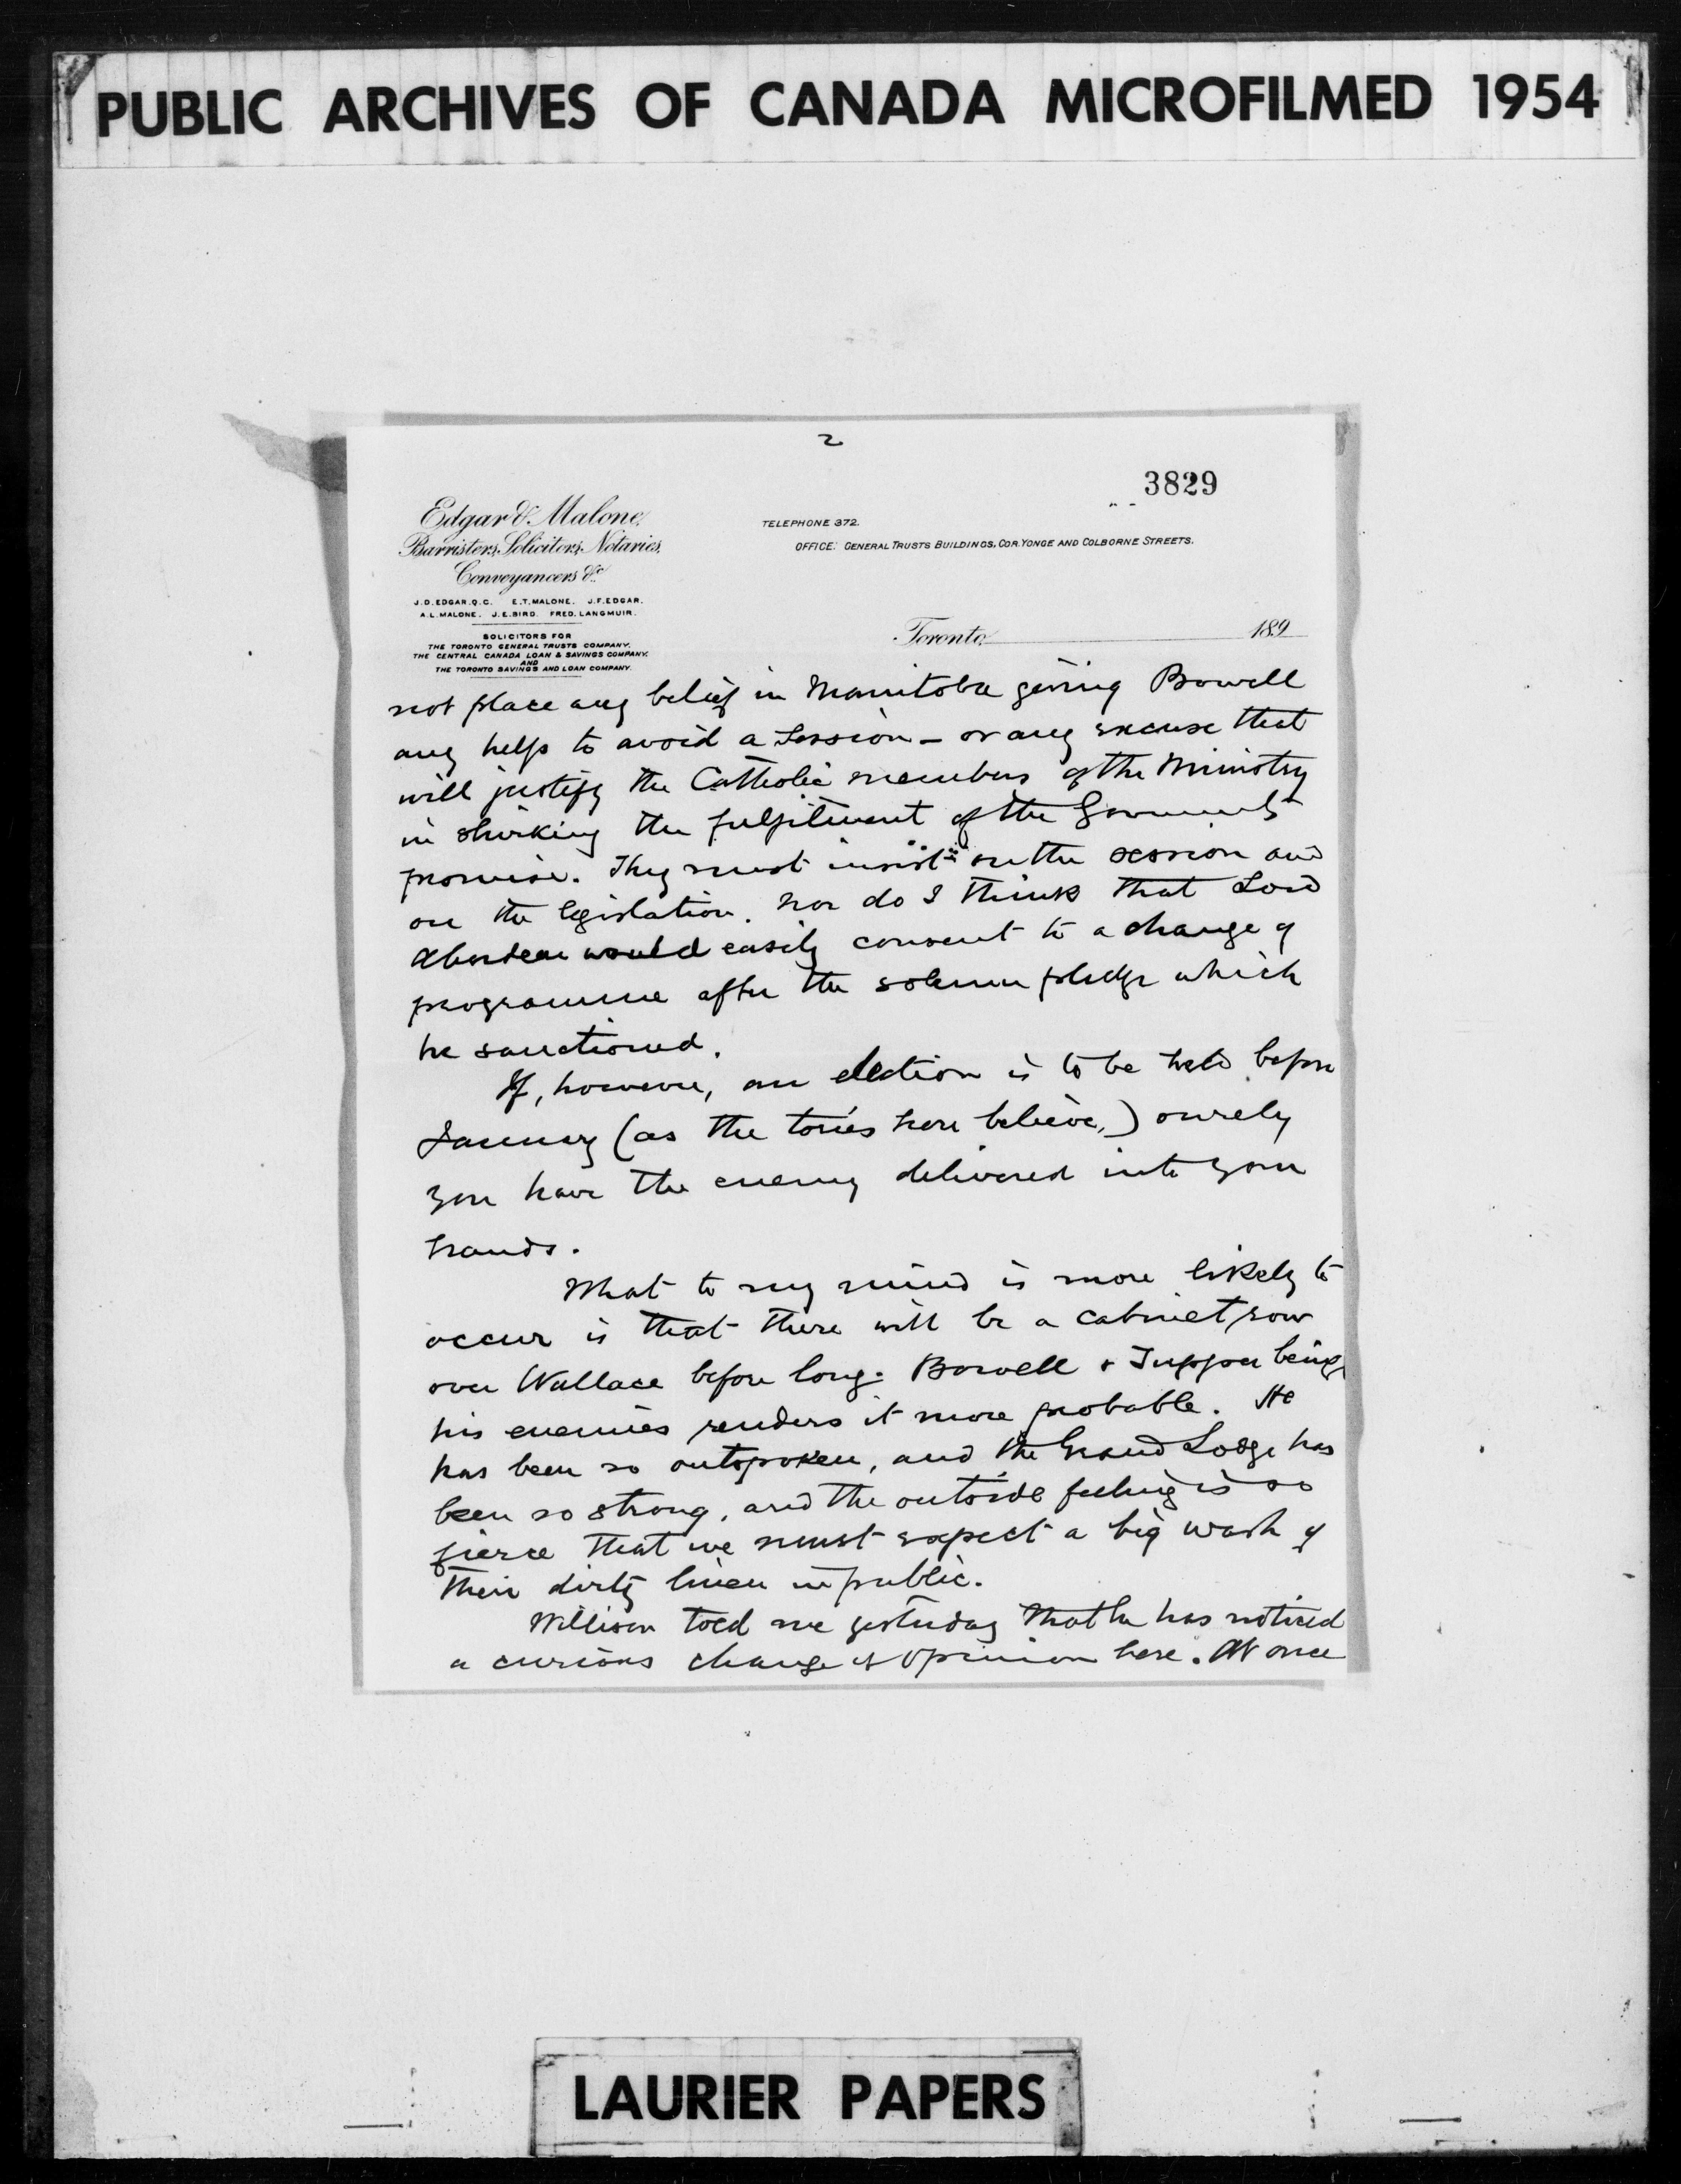 PUBLIC ARCHIVES OF CANADA MICROFILMED 1954
2
3829
Edgar & Malone,
Barristers, Solicitors, Notaries,
Conveyancers &c.
J.D. EDGAR. Q.C. E.T. MALONE. J.F. EDGAR.
A.L. MALONE. J.E. BIRD. FRED. LANGMUIR.
SOLICITORS FOR
THE TORONTO GENERAL TRUSTS COMPANY.
THE CENTRAL CANADA LOAN & SAVINGS COMPANY.
AND
THE TORONTO SAVINGS AND LOAN COMPANY.
TELEPHONE 372.
OFFICE: GENERAL TRUSTS BUILDINGS, COR. YONGE AND COLBORNE STREETS.
Toronto, 189
not place any belief in Manitoba giving Bowell
any help to avoid a session - or any excuse that
will justify the Catholic members of the Ministry
in shirking the fulfilment of the Governments
promise. They must insist on the session and
on the legislation. Nor do I think that Lord
Aberdeen would easily consent to a change of
programme after the solemn pledge which
he sanctioned.
If, however, an election is to be held before
January (as the tories here believe,) surely
you have the enemy delivered into your
hands.
What to my mind is more likely to
occur is that there will be a cabinet row
over Wallace before long. Bowell & Tupper being
his enemies renders it more probable. He
has been so outspoken, and the Grand Lodge has
been so strong, and the outside feeling is so
fierce that we must expect a big wash of
their dirty linen in public.
Willison told me yesterday that he has noticed
a curious change of opinion here. At once
LAURIER PAPERS